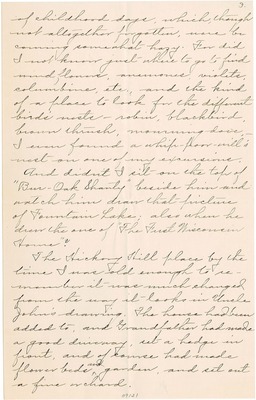 3.
of childhood days, which though
not altogether forgotten, were be-
coming somewhat hazy. For did
I not know just where to go to find
wind flowers, anemones, violets,
columbine, etc., and the kind
of a place to look for the different
birds nests - robin, blackbird,
brown thrush, mourning dove,
I even found a whip-poor-will's
nest on one of my excursions.
And didn't I sit on the top of
"Bur-Oak Shanty" beside him and
watch him draw that picture
of Fountain Lake, also when he
drew the one of "The First Wisconsin
Home"?
The Hickory Hill place by the
time I was old enough to re-
member it was much changed
from the way it looks in Uncle
John's drawing. The house had been
added to, and Grandfather had made
a good driveway, set a hedge in
front, and of course had made
flower beds, and garden, and set out
a fine orchard.